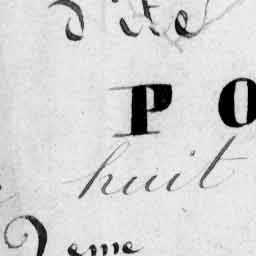 dite
P O
huit
2eme